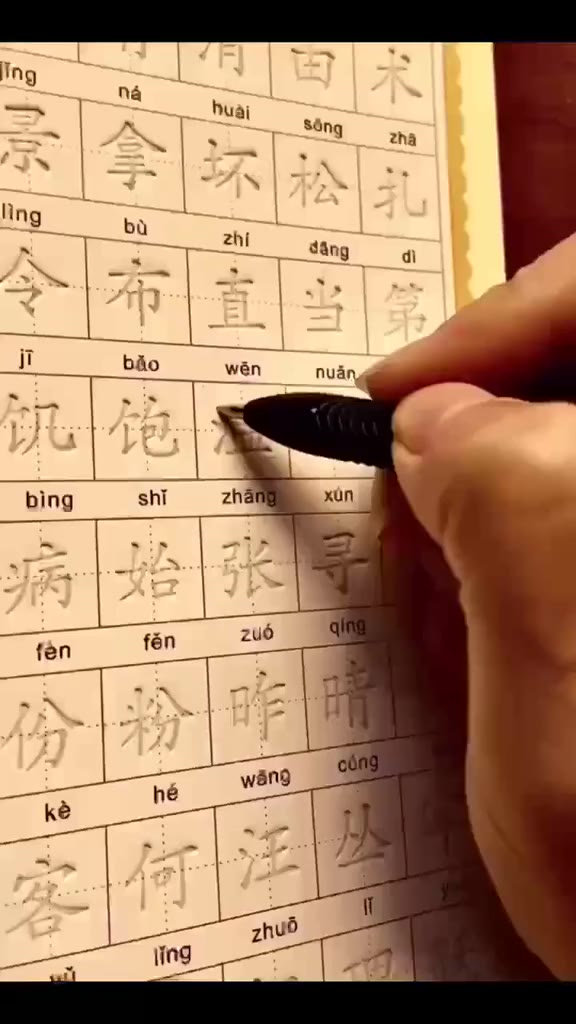 术
jǐng ná huài sōng zhā
景 拿 坏 松 扎
lìng bù zhí dāng dì
令 布 直 当 第
jī bǎo wēn nuǎn
饥 饱 温
bìng shǐ zhāng xún
病 始 张 寻
fèn fěn zuó qíng
份 粉 昨 晴
kè hé wāng cóng
客 何 汪 丛
lǐng zhuō lǐ
理